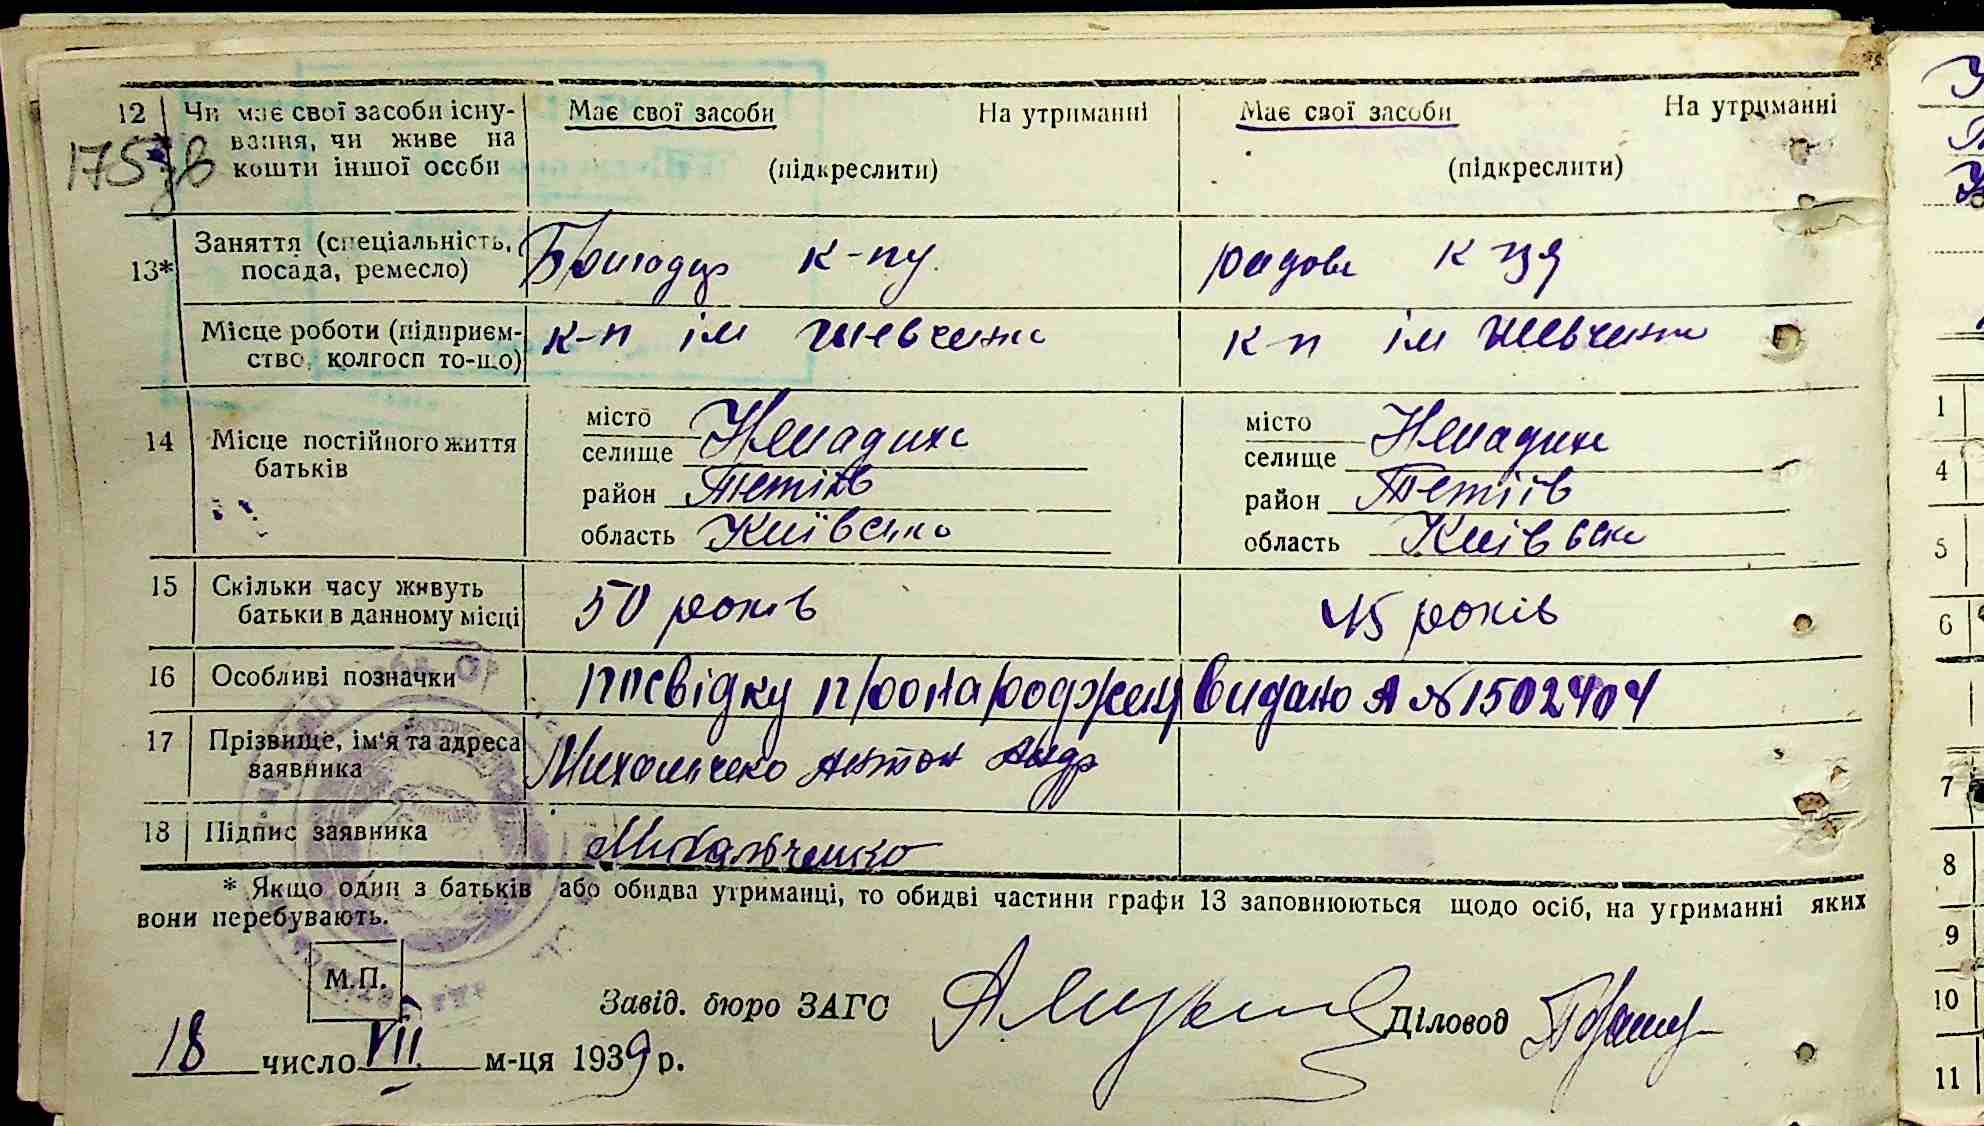 12 Чи має свої засоби існу- Має свої засоби На утриманні Має свої засоби На утриманні
вання, чи живе на
кошти іншої особи (підкреслити) (підкреслити)
175
13* Заняття (спеціальність, посада, ремесло) Бригадир к-пу рядова к-ця
Місце роботи (підприєм- к-п ім Шевченка к-п ім Шевченка
ство, колгосп то-що)
14 Місце постійного життя батьків
місто селище Ненадиха місто селище Ненадиха
район Тетіїв район Тетіїв
область Київська область Київська
15 Скільки часу живуть 50 років 45 років
батьки в данному місці
16 Особливі позначки посвідку про народжен видано А № 1502404
17 Прізвище, ім'я та адреса Михальченко Антон Андр
заявника
18 Підпис заявника Михальченко
* Якщо один з батьків або обидва утриманці, то обидві частини графи 13 заповнюються щодо осіб, на утриманні яких
вони перебувають.
М.П.
Завід. бюро ЗАГС Діловод
18 число VII м-ця 1939 р.
1
4
5
6
7
8
9
10
11